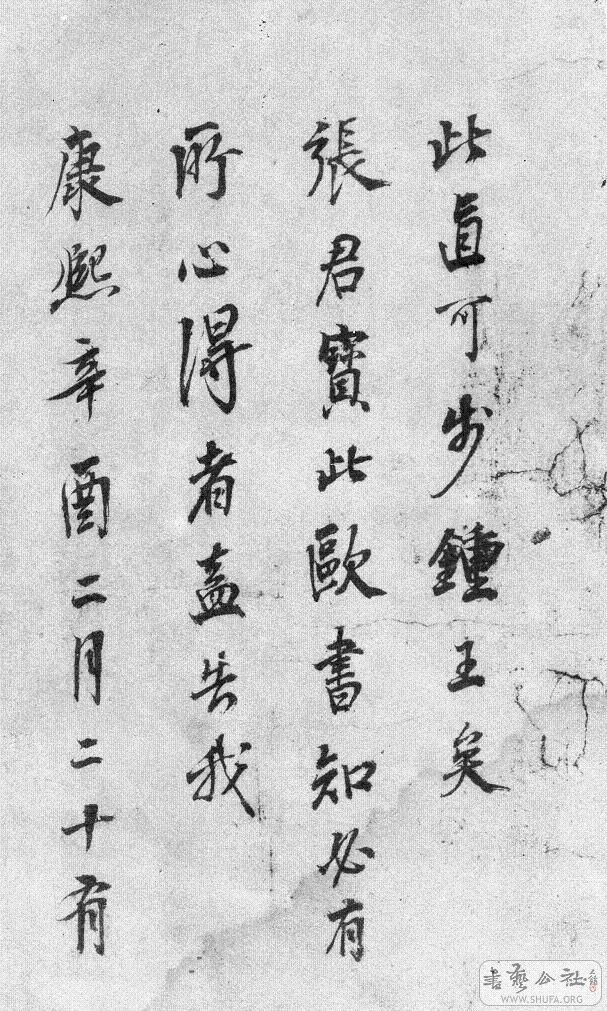 此真可步鍾王矣
張君寶此歐書知必有
所心得者盍告我
康熙辛酉二月二十有
書藝公社
WWW.SHUFA.ORG